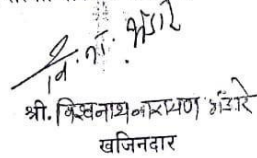 वि. ना. भंडारे
श्री. विश्वनाथ नारायण भंडारे
खजिनदार